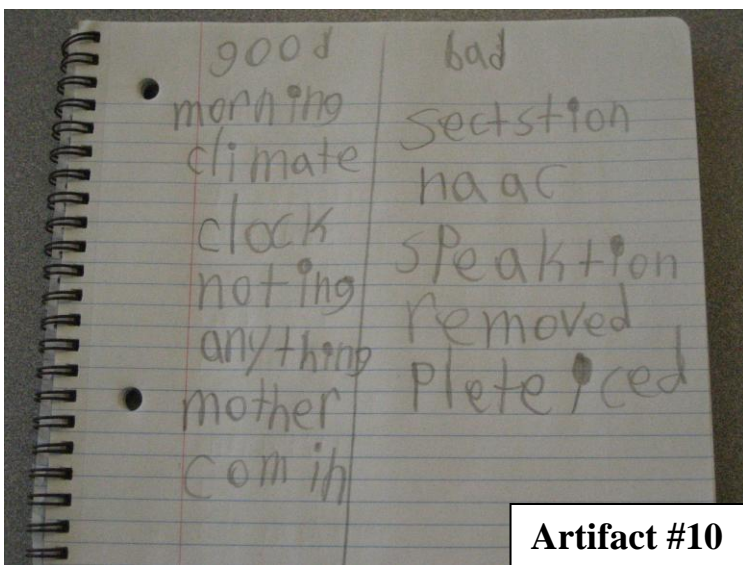 good
morning
climate
clock
noting
anything
mother
com in
bad
sectstion
naac
speaktion
removed
Pleteiced
Artifact #10